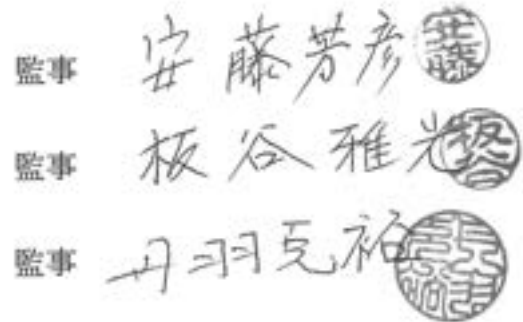 監事 安藤芳彦 安藤
監事 板谷雅光 板谷
監事 丹羽克裕